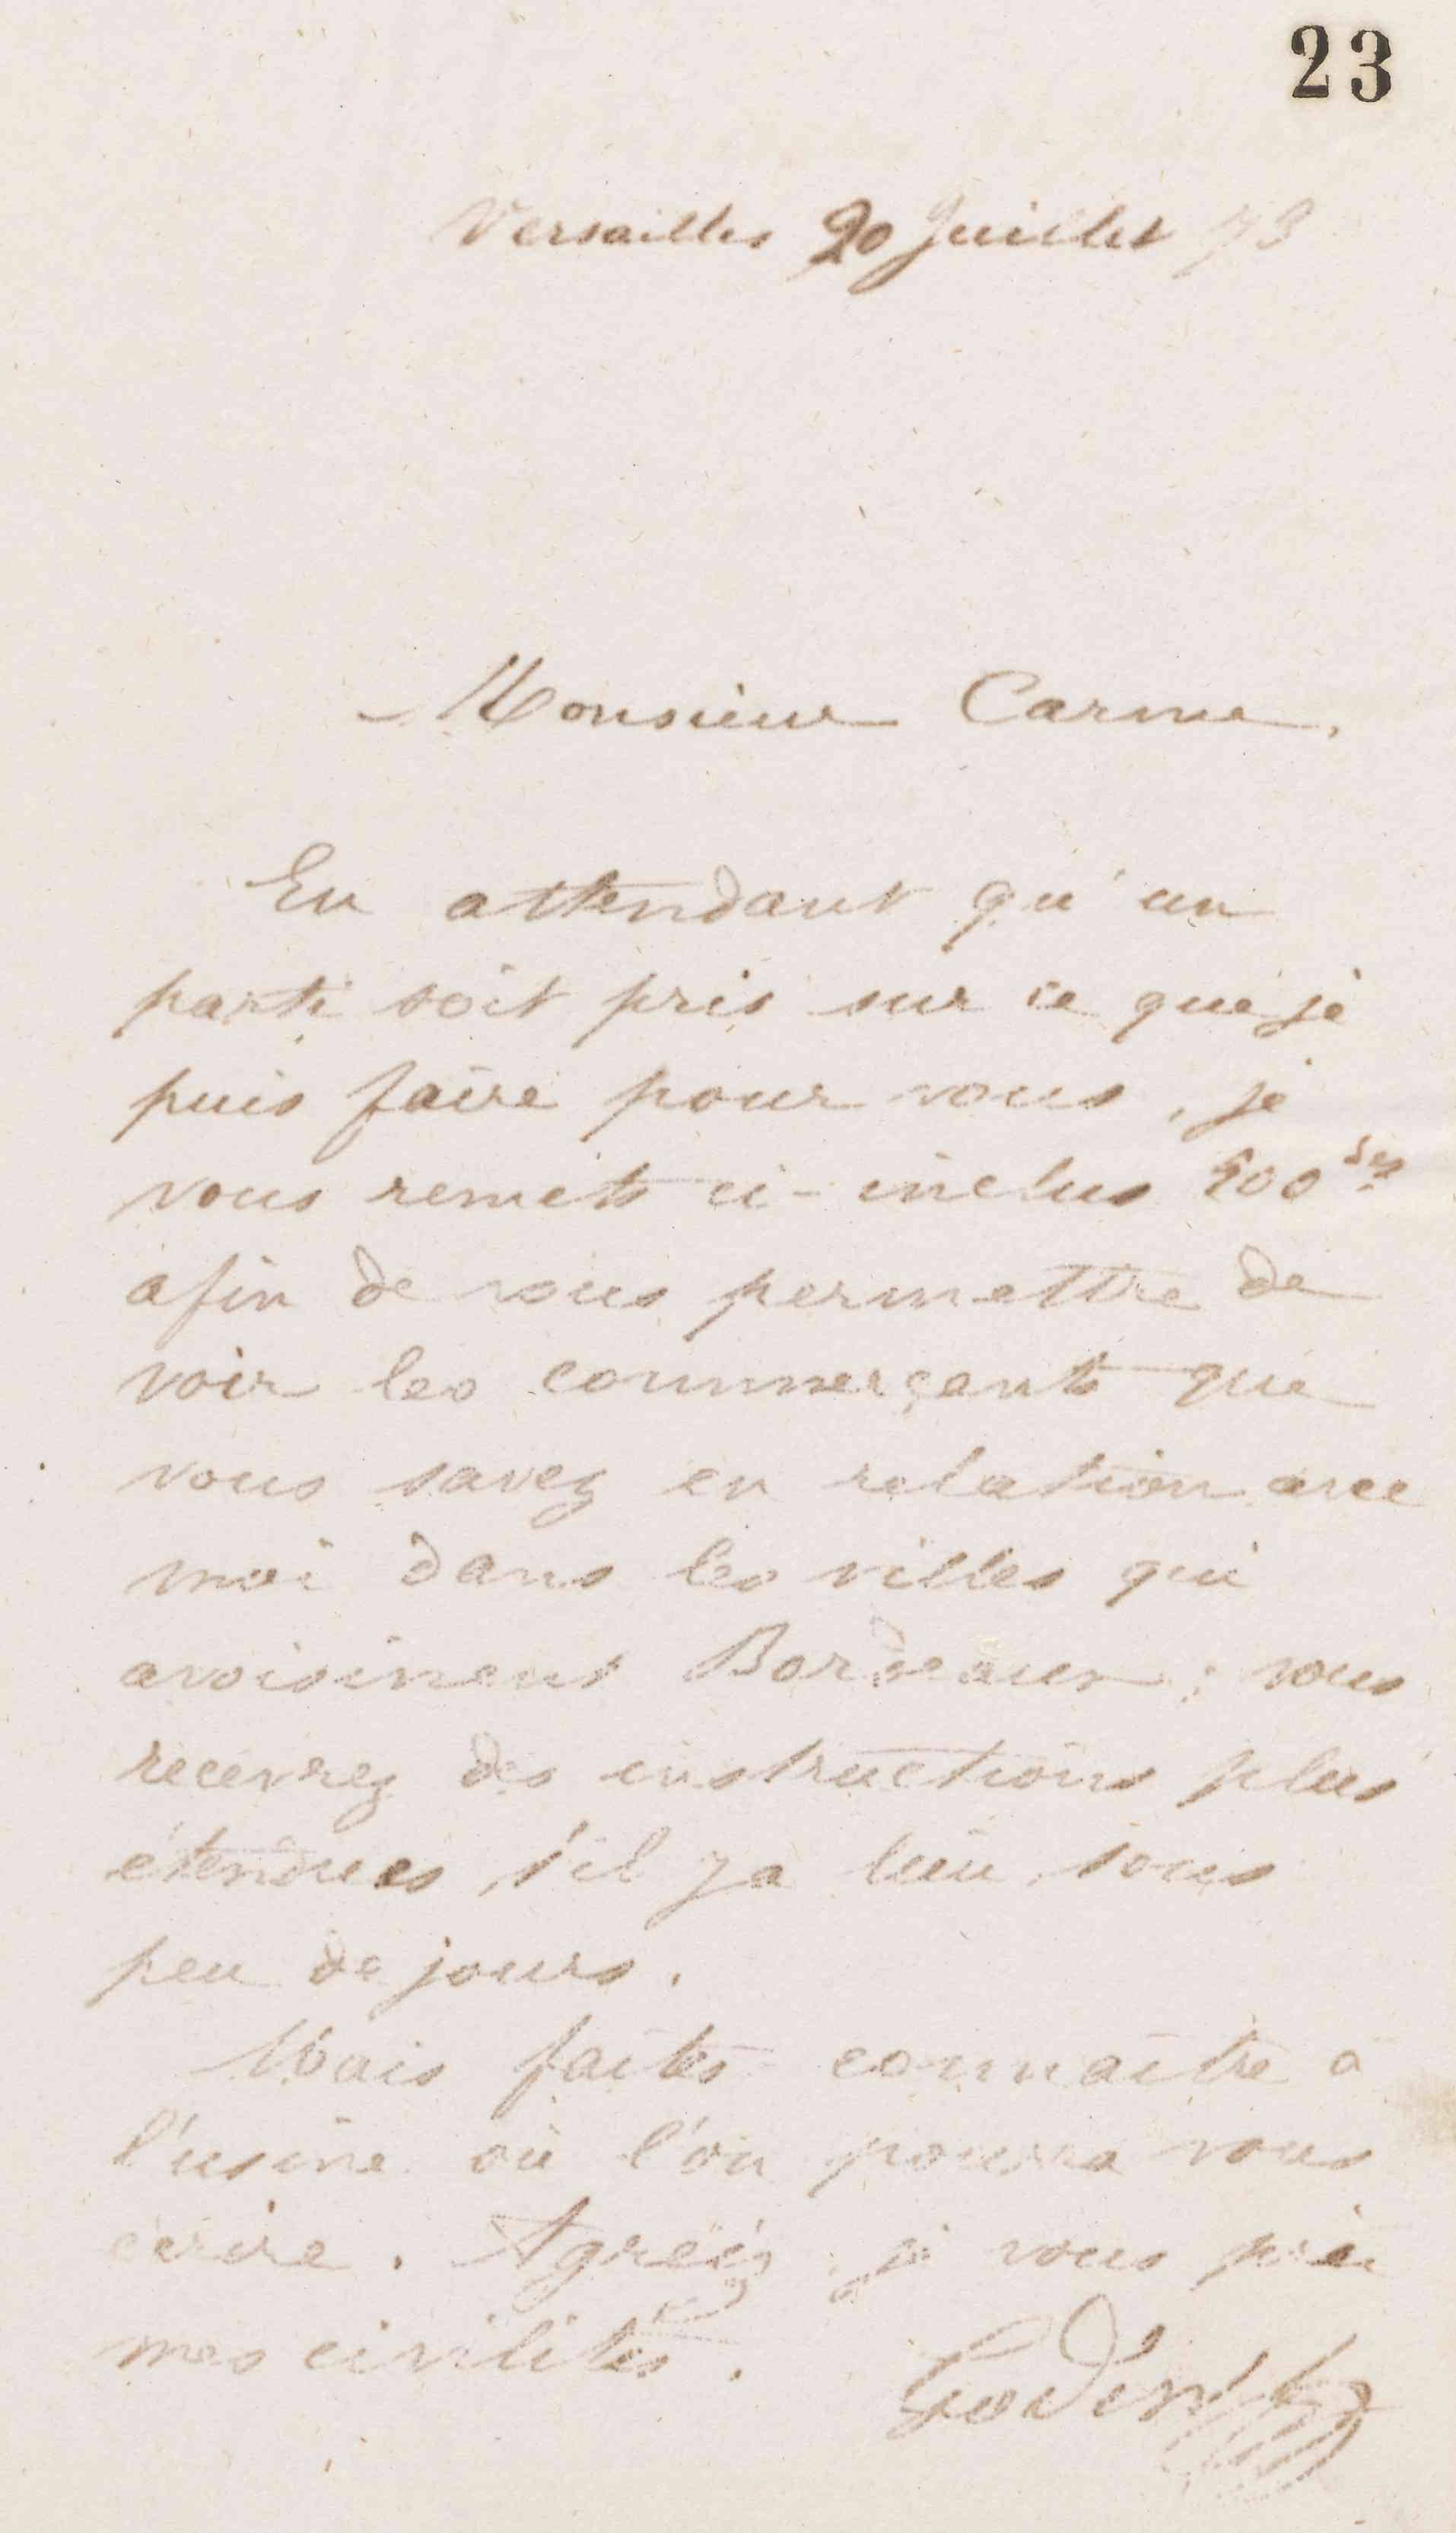 23
Versailles 20 Juillet 73
Monsieur Carme,
En attendant qu'un
parti soit pris sur ce que je
puis faire pour vous, je
vous remets ci-inclus 500
afin de vous permettre de
voir les commerçants que
vous savez en relation avec
moi dans les villes qui
avoisinent Bordeaux; vous
recevrez des instructions plus
étendues, s'il y a lieu, sous
peu de jours.
Mais faites connaître à
l'usine où l'on pourra vous
écrire. Agréez, je vous prie
mes civilités.
Godin